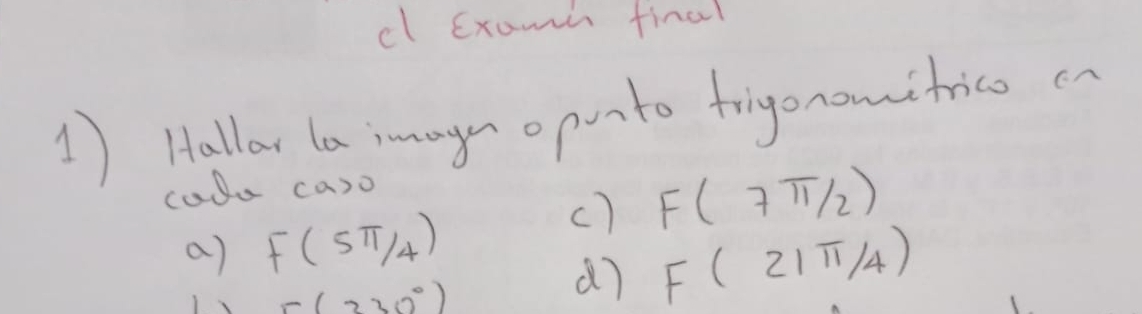 el Examen final
1) Hallar la imagen o punto trigonométrico en
cada caso
a) F( 5π/4)
c) F( 7π/2)
d) F( 21π/4)